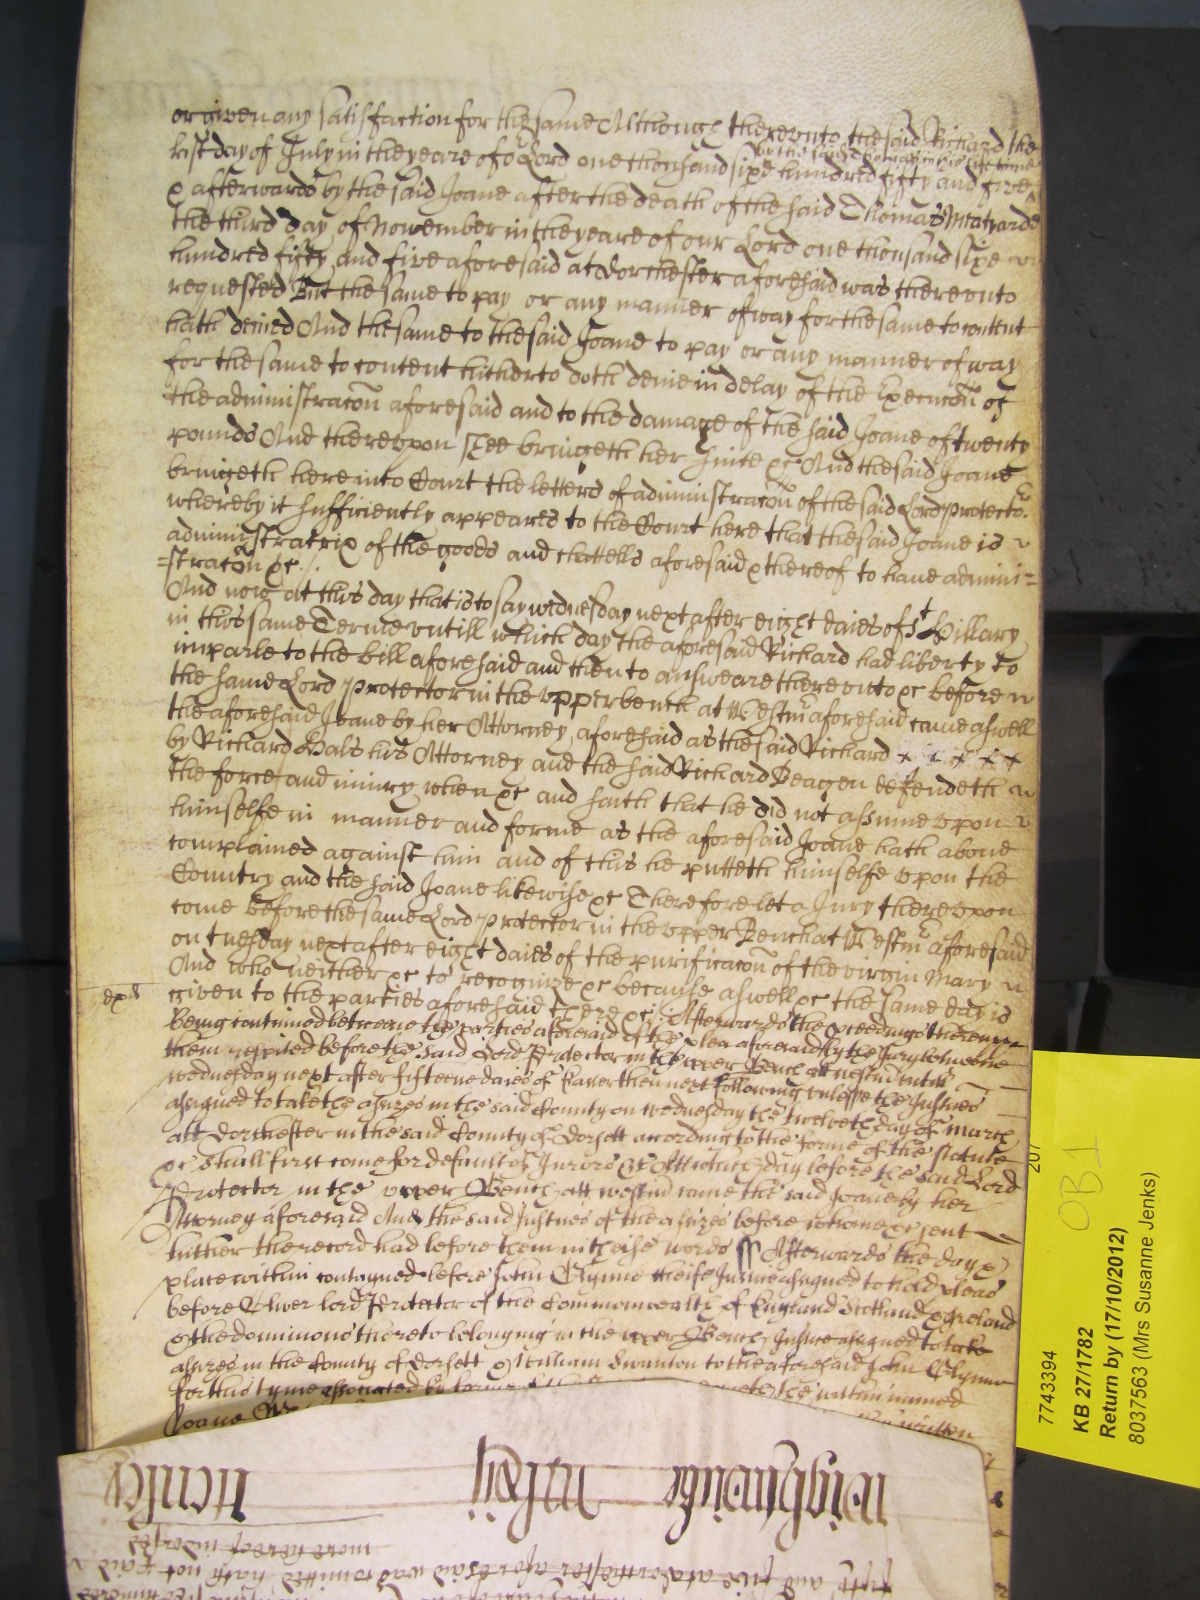 or given any satisfaction for the same Although thereunto the said Richard the
last day of July in the yeare of our Lord one thousand sixe hundred fifty and five
by the said Thomas in his life time
& afterwards by the said Joane after the death of the said Thomas Meatyard
the third day of November in the yeare of our Lord one thousand sixe
hundred fifty and five aforesaid at Dorchester aforesaid was thereunto
requested But the same to pay or any manner of way for the same to content
hath denied And the same to the said Joane to pay or any manner of way
for the same to content hitherto doth denie in delay of the Execucon of
the administracon aforesaid and to the damage of the said Joane of twenty
pounds And thereupon shee bringeth her suite &c And the said Joane
bringeth here into Court the letters of administracon of the said Lord Protector
whereby it sufficiently appeares to the Court here that the said Joane is
administratrix of the goods and chattells aforesaid & thereof to have admini=
=stracon &c
And now at this day that is to say wednesday next after eight daies of St Hillary
in this same Terme untill which day the aforesaid Richard had liberty to
imparle to the bill aforesaid and then to answeare thereunto &c before
the same Lord Protector in the upper bench at Westmr aforesaid came aswell
the aforesaid Joane by her Attorney aforesaid as the said Richard
by Richard Hals his Attorney and the said Richard Beagen defendeth
the force and iniury when &c and saith that he did not assume upon
himselfe in manner and forme as the aforesaid Joane hath above
complained against him and of this he putteth himselfe upon the
Country and the said Joane likewise &c Therefore let a Jury thereupon
come before the same Lord Protector in the upper Bench at Westmr aforesaid
on tuesday next after eight daies of the purificacon of the virgin Mary
And who neither &c to recognize &c because aswell &c the same day is
given to the parties aforesaid there &c Afterwards the proceedings thereupon
being continued betweene the parties aforesaid of the plea aforesaid by the Jury betweene
them respited before the said Lord Protector in the upper Bench att westmr untill
wednesday next after fifteene daies of Easter then next following unlesse the Justices
assigned to take the assizes in the said County on wednesday the twelveth day of March
att Dorchester in the said County of Dorsett according to the forme of the statute
&c shall first come for default of Jurors &c Att which day before the said Lord
Protector in the upper Bench att westmr came the said Joane by her
Attorney aforesaid And the said Justices of the assizes before whome &c sent
hither the record had before them in these words ss Afterwards the day &
place within contayned before John Glynne cheife Justice assigned to hold pleas
before Oliver lord Protector of the Commonwealth of England Scotland & Ireland
& the dominions thereto belonging in the upper Bench Justice assigned to take
assizes in the County of Dorsett & William Swanton to the aforesaid John Glynne
for this tyme associated by
within named
Joane
written
207
OB1
7743394
KB 27/1782
Return by (17/10/2012)
8037563 (Mrs Susanne Jenks)